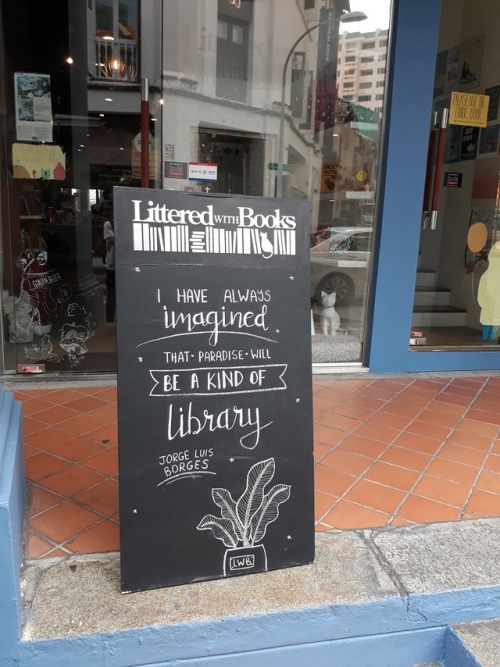 PLEASE USE THE
OTHER DOOR
Littered WITH Books
I HAVE ALWAYS
imagined
THAT · PARADISE · WILL
BE A KIND OF
library
JORGE LUIS
BORGES
LWB